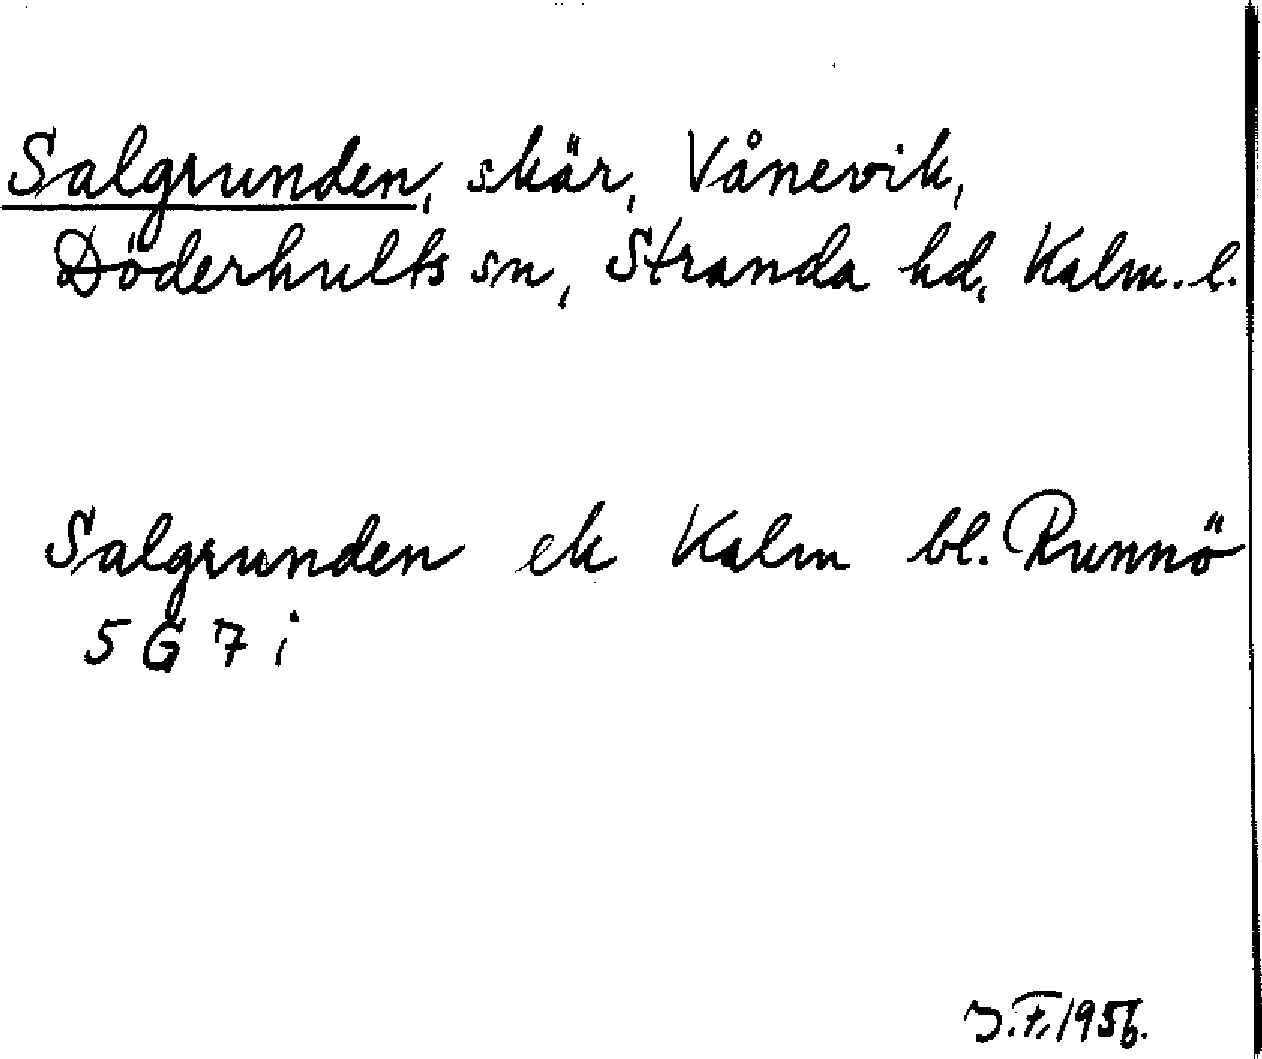 Salgrunden, skär, Vånevik,
Döderhults sn, Stranda hd, Kalm. l.
Salgrunden ek Kalm bl. Runnö
5 G 7 i
J.F. 1956.